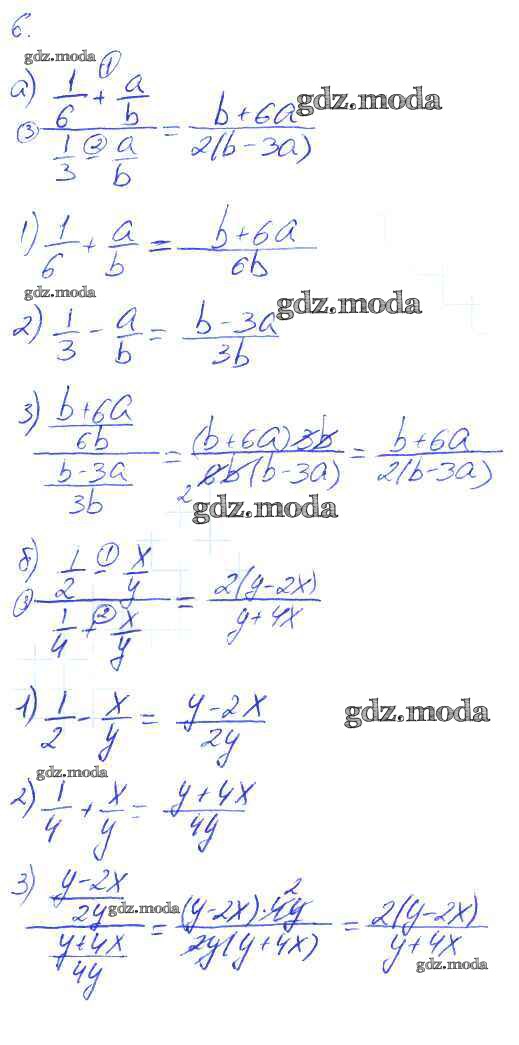 6.
gdz.moda
а) (1/6 +① a/b) / ③ (1/3 -② a/b) = (b+6a) / (2(b-3a))
gdz.moda
1) 1/6 + a/b = (b+6a) / 6b
gdz.moda
gdz.moda
2) 1/3 - a/b = (b-3a) / 3b
3) ((b+6a) / 6b) / ((b-3a) / 3b) = ((b+6a)3b) / (6b(b-3a)) 2 = (b+6a) / (2(b-3a))
gdz.moda
б) (1/2 -① x/y) / ③ (1/4 +② x/y) = 2(y-2x) / (y+4x)
1) 1/2 - x/y = (y-2x) / 2y
gdz.moda
gdz.moda
2) 1/4 + x/y = (y+4x) / 4y
3) ((y-2x) / 2y) / ((y+4x) / 4y) = ((y-2x)·4y 2) / (2y(y+4x)) = 2(y-2x) / (y+4x)
gdz.moda
gdz.moda